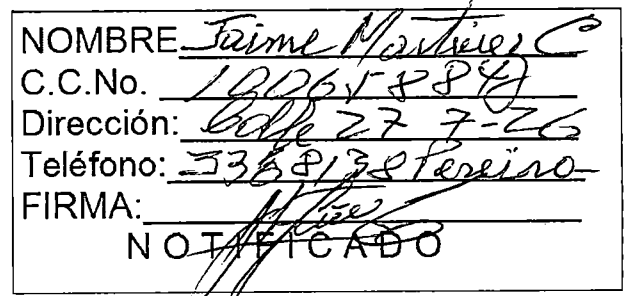 NOMBRE Jaime Martinez C
C.C.No.
Dirección: Calle 27 7-26
Teléfono: 3368138 Pereira
FIRMA:
NOTIFICADO